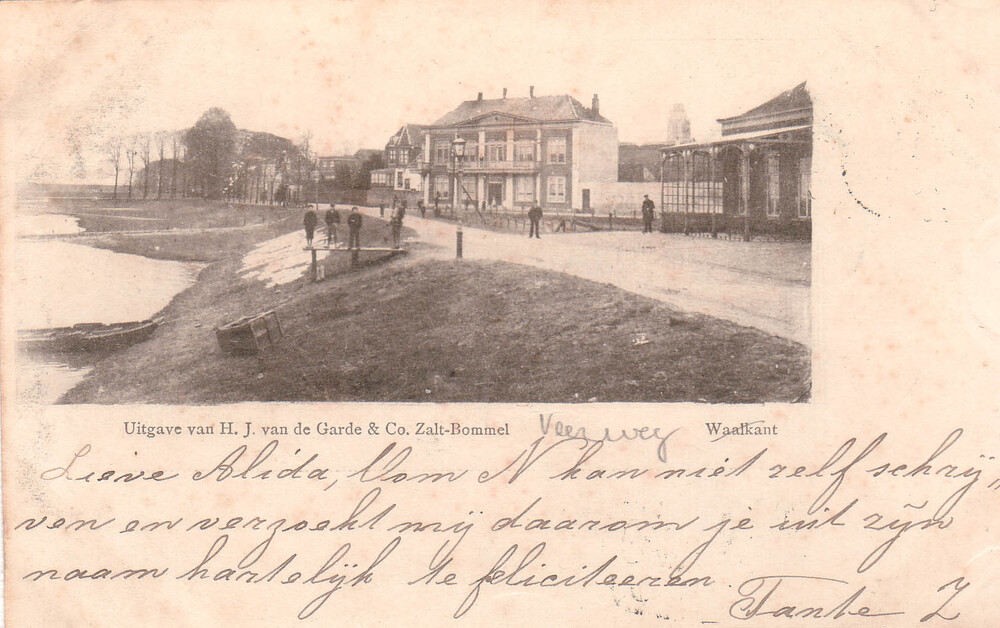 Uitgave van H. J. van de Garde & Co. Zalt-Bommel Veerweg Waalkant
Lieve Alida, Oom N kan niet zelf schrij„
ven en verzoekt mij daarom je uit zijn
naam hartelijk te feliciteeren.
Tante Z